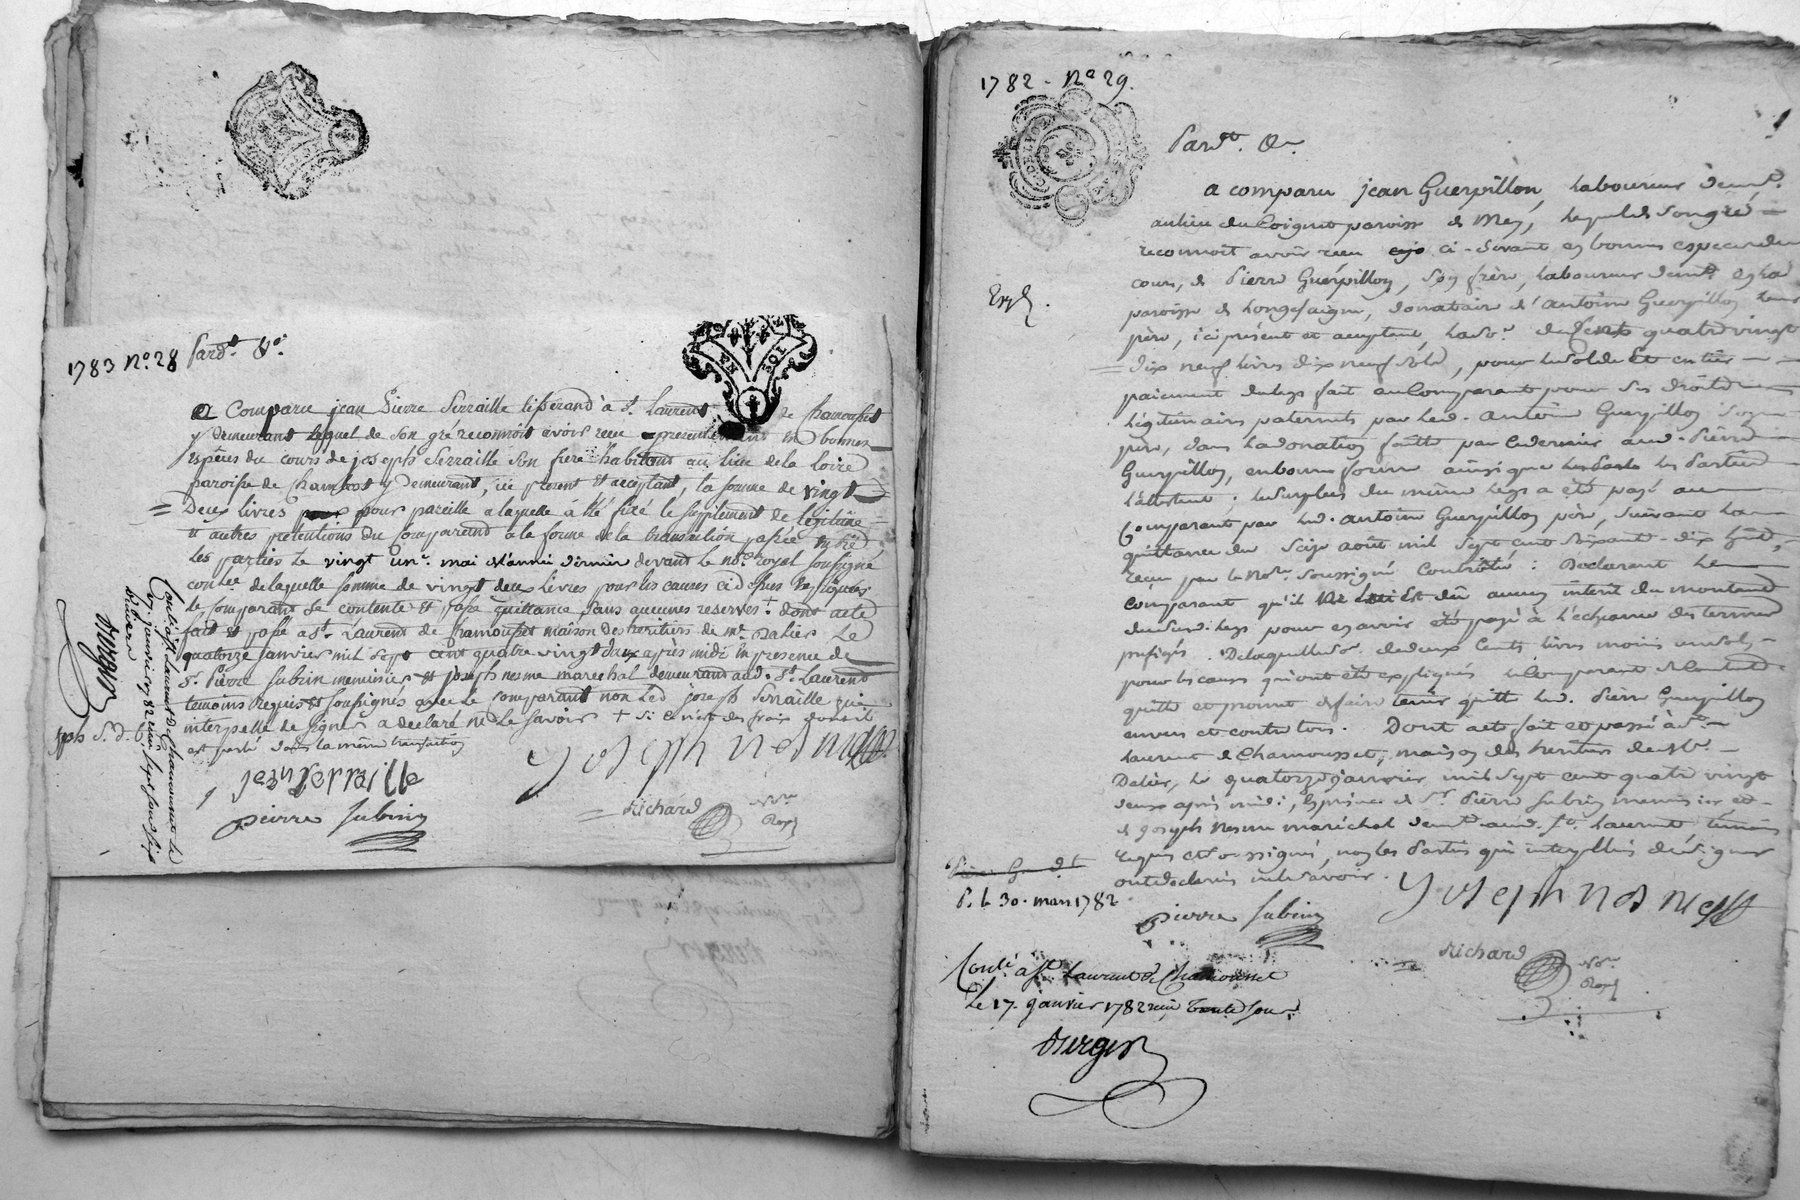 1783 N°. 28
Pard.t &c.
A Comparu jean Pierre Serraille tisserand à St. Laurent de Chamousset
y Demeurant Lequel de Son gré reconnoit avoir recu presentement en bonnes
espèces du cours de joseph Serraille Son frère habitant au lieu de la Loire
paroisse de Chambost y Demeurant, ici present et acceptant, la somme de vingt
Deux livres pour pareille a laquelle a été fixé le supplement de legitime
et autres pretentions du Comparant a la forme de la transaction passée entre
Les parties Le vingt un. mai de l'année dernier devant le no.re royal soussigné
con.lée de laquelle somme de vingt deux livres pour les causes ci dessus
Le Comparant Se contente et passe quittance Sans aucunes reserves + dont acte
fait et passé a St. Laurent de Chamousset maison des heritiers de Mr. Dalier Le
quatorze janvier mil sept cent quatre vingt deux après midi in presence de
Sr. Pierre Subrin menuisier et joseph nesme marechal demeurant aud. St. Laurent
temoins requis et soussignés avec le comparant non Led. joseph Serraille qui
interpellé de signer a declaré ne Le savoir + Si ce n'est des frais dont il
est parlé dans la même transaction
jean Serraille
joseph nesme
pierre Subrin
Richard
No.re
Royal
Conlé. a St. Laurent de Chamousset le
17. janvier 1782 reçu
1782 - N° 29.
Pard.t &c.
a comparu jean Guerpillon, Laboureur demt.
au lieu du Coignet paroisse de Meÿ, lequel de son gré
reconnoit avoir reçu ci-devant en bonnes especes du
cours, de Pierre Guerpillon, son frère, Laboureur demt. en la
paroisse de Longessaigne, donataire d'antoine Guerpillon leur
père, ici présent et acceptant, la so.e de Cent quatre vingt
dix neuf livres dix neuf sols, pour le solde et entier
paiement du legs fait au Comparant pour ses droits
légitimaires paternels par led. antoine Guerpillon son
père, dans la donation faitte par ce dernier aud. Pierre
Guerpillon, en bonne forme ainsi que les Parties
l'attestent; le surplus du même legs a été payé au
Comparant par led. antoine Guerpillon père, suivant la
quittance du seize août mil sept cent soixante-dix huit,
reçue par le No.re soussigné Contrôlée: Déclarant le
comparant qu'il ne lui est dû aucun intérêt du montant
dud. legs pour en avoir été payé à l'échéance des termes
préfigés. De laquelle so.e de deux Cents livres moins un sol,
pour les causes qui ont été expliquées le comparant se contente
quitte et promet de faire tenir quitte led. Pierre Guerpillon
envers et contre tous. Dont acte fait et passé à St.
Laurent de Chamousset, maison des heritiers de Mr.
Dalier, le quatorze janvier mil sept cent quatre vingt
deux après midi, en présence de Sr. Pierre Subrin menuisier et
de joseph Nesme maréchal demt. aud. St. Laurent, témoins
requis et soussignés, non les Parties qui interpellées de signer
ont declaré ne le savoir.
Exp.
P. le 30. mars 1782
pierre Subrin
joseph nesme
Richard
No.re
Royal
Conlé. a St. Laurent de Chamousset
Le 17. janvier 1782 reçu trente sous